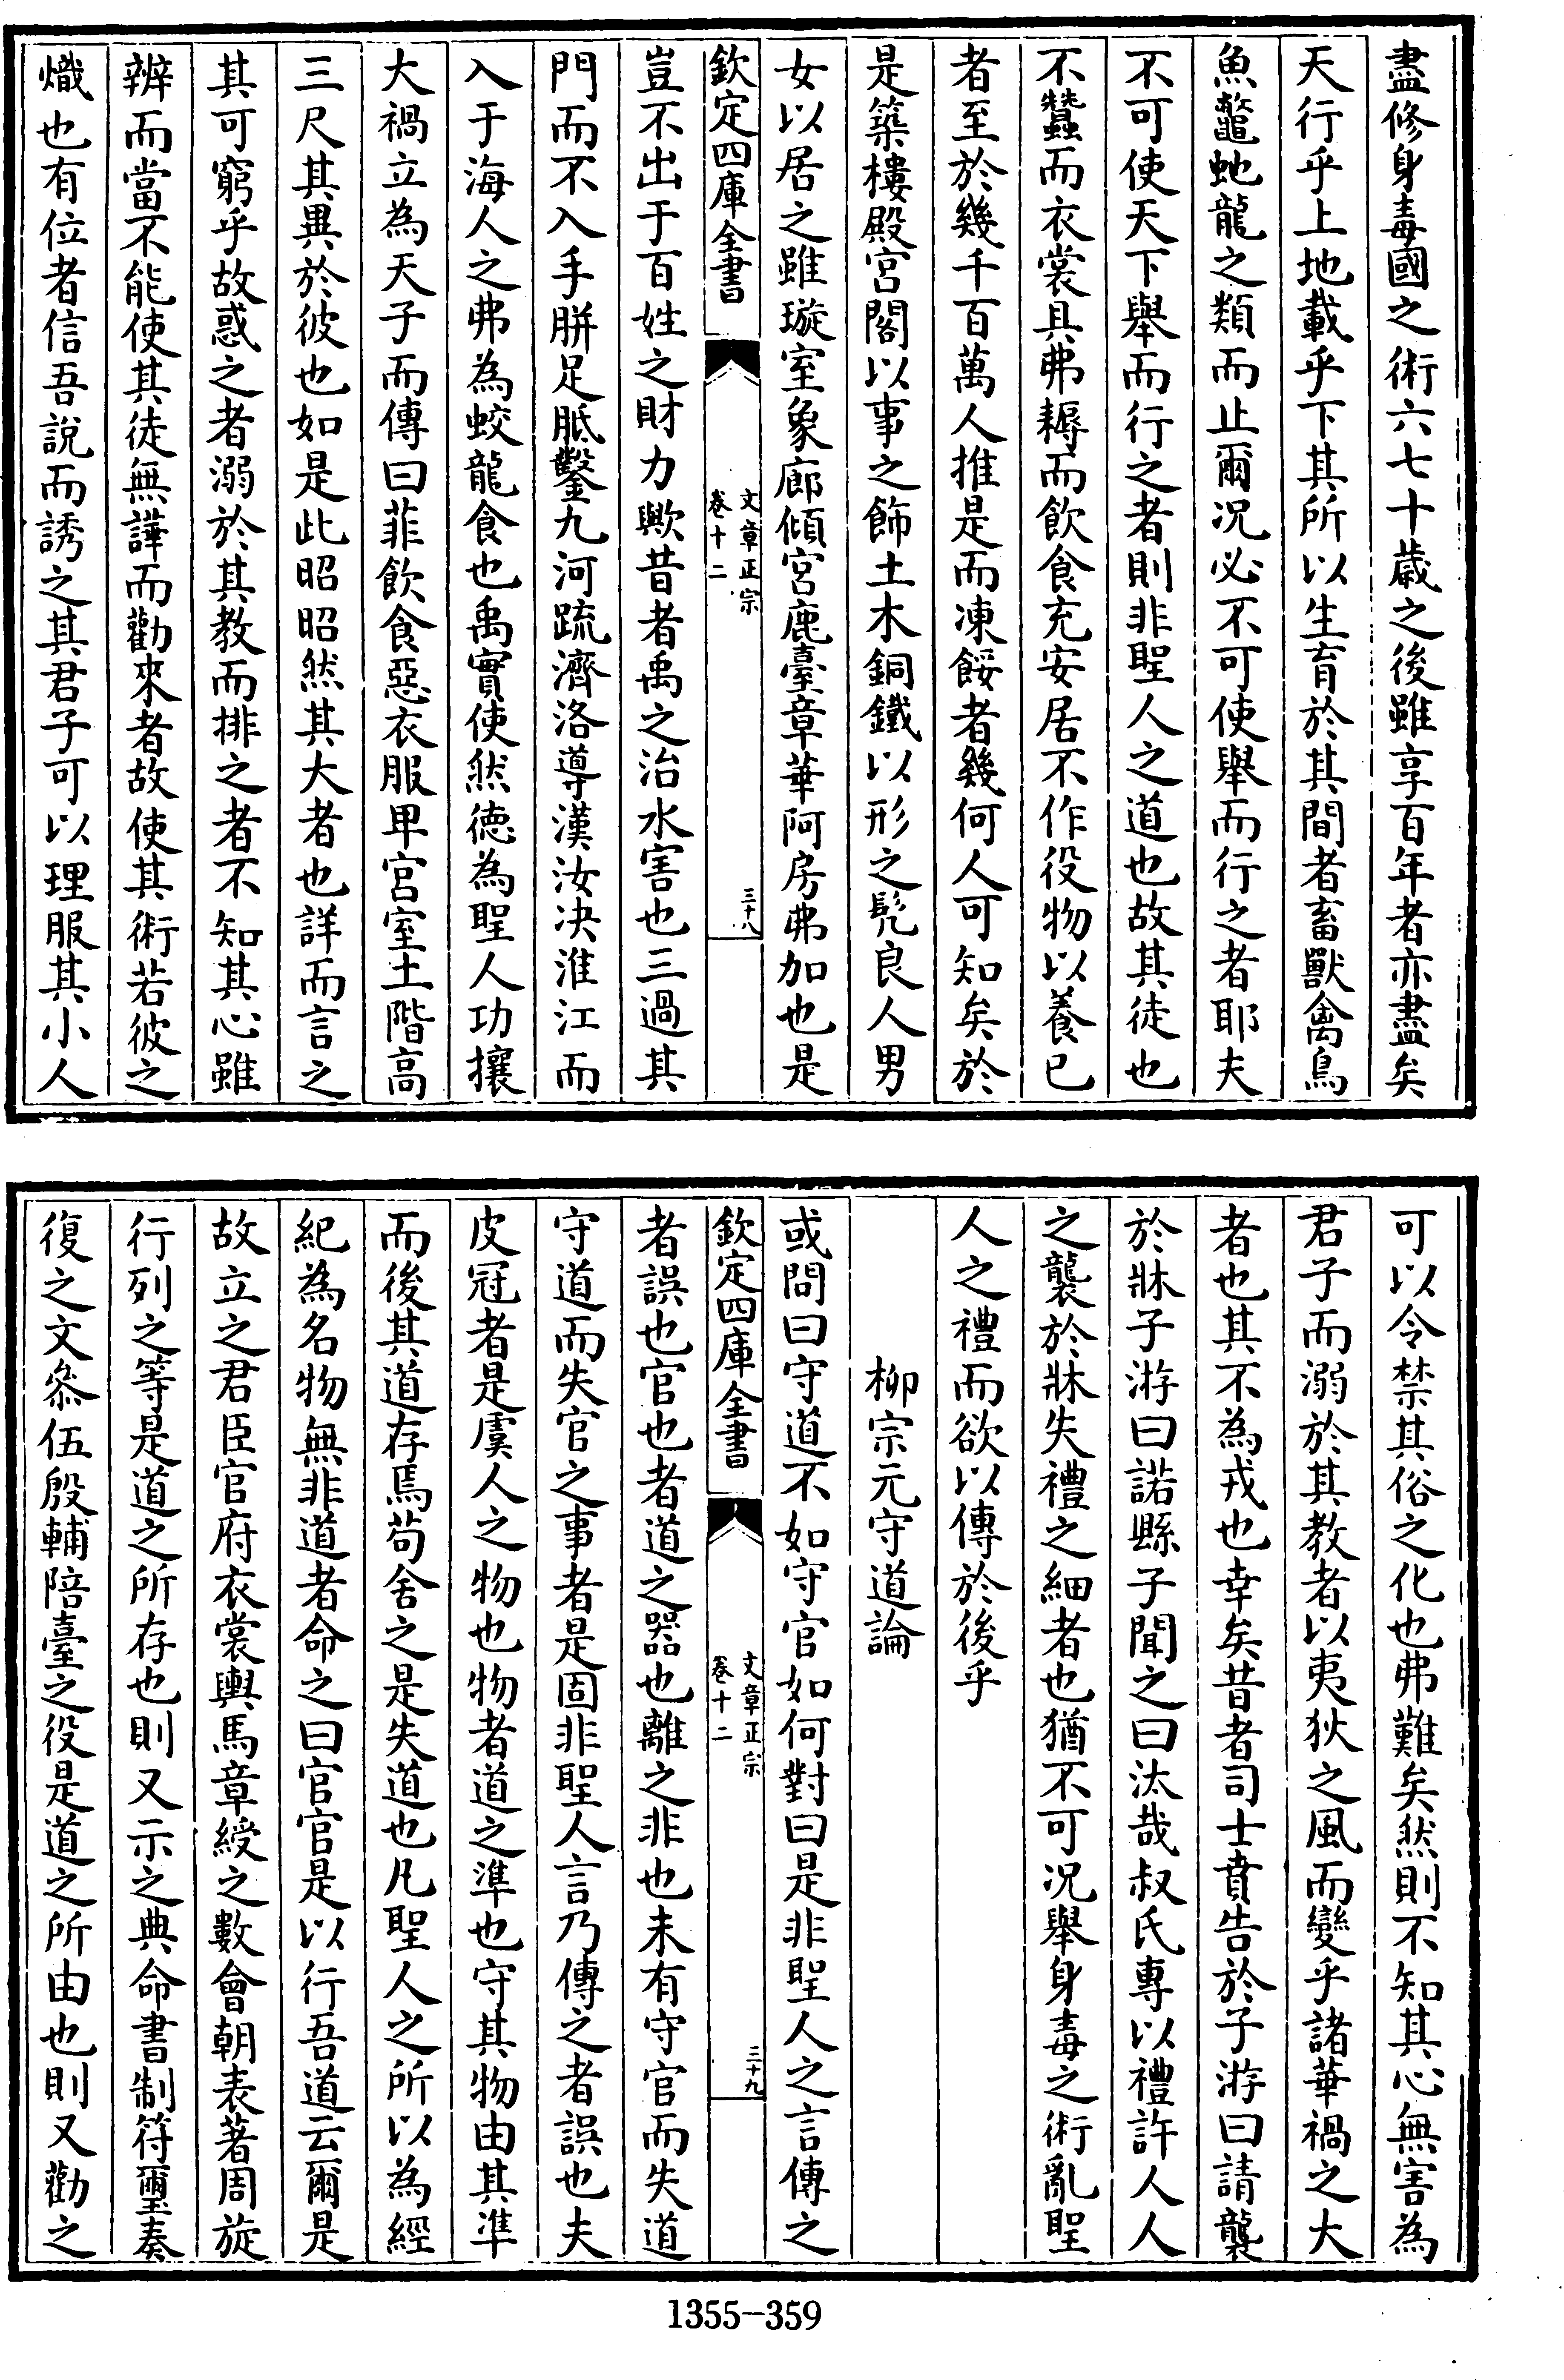 盡修身毒國之術六七十歲之後雖享百年者亦盡矣
天行乎上地載乎下其所以生育於其間者畜獸禽鳥
魚鼈虵龍之類而止爾況必不可使舉而行之者耶夫
不可使天下舉而行之者則非聖人之道也故其徒也
不蠶而衣裳具弗耨而飲食充安居不作役物以養已
者至於幾千百萬人推是而凍餒者幾何人可知矣於
是築樓殿宮閣以事之飾土木銅鐵以形之髠良人男
女以居之雖璇室象廊傾宮鹿臺章華阿房弗加也是
欽定四庫全書
文章正宗
卷十二
三十八
豈不出于百姓之財力歟昔者禹之治水害也三過其
門而不入手胼足胝鑿九河疏濟洛導漢汝决淮江而
入于海人之弗為蛟龍食也禹實使然德為聖人功攘
大禍立為天子而傳曰菲飲食惡衣服卑宮室土階高
三尺其異於彼也如是此昭昭然其大者也詳而言之
其可窮乎故惑之者溺於其教而排之者不知其心雖
辨而當不能使其徒無譁而勸來者故使其術若彼之
熾也有位者信吾說而誘之其君子可以理服其小人
可以令禁其俗之化也弗難矣然則不知其心無害為
君子而溺於其教者以夷狄之風而變乎諸華禍之大
者也其不為戎也幸矣昔者司士賁告於子游曰請襲
於牀子游曰諾縣子聞之曰汰哉叔氏專以禮許人人
之襲於牀失禮之細者也猶不可況舉身毒之術亂聖
人之禮而欲以傳於後乎
柳宗元守道論
或問曰守道不如守官如何對曰是非聖人之言傳之
欽定四庫全書
文章正宗
卷十二
三十九
者誤也官也者道之器也離之非也未有守官而失道
守道而失官之事者是固非聖人言乃傳之者誤也夫
皮冠者是虞人之物也物者道之準也守其物由其準
而後其道存焉苟舍之是失道也凡聖人之所以為經
紀為名物無非道者命之曰官官是以行吾道云爾是
故立之君臣官府衣裳輿馬章綬之數會朝表著周旋
行列之等是道之所存也則又示之典命書制符璽奏
復之文叅伍殷輔陪臺之役是道之所由也則又勸之
1355-359